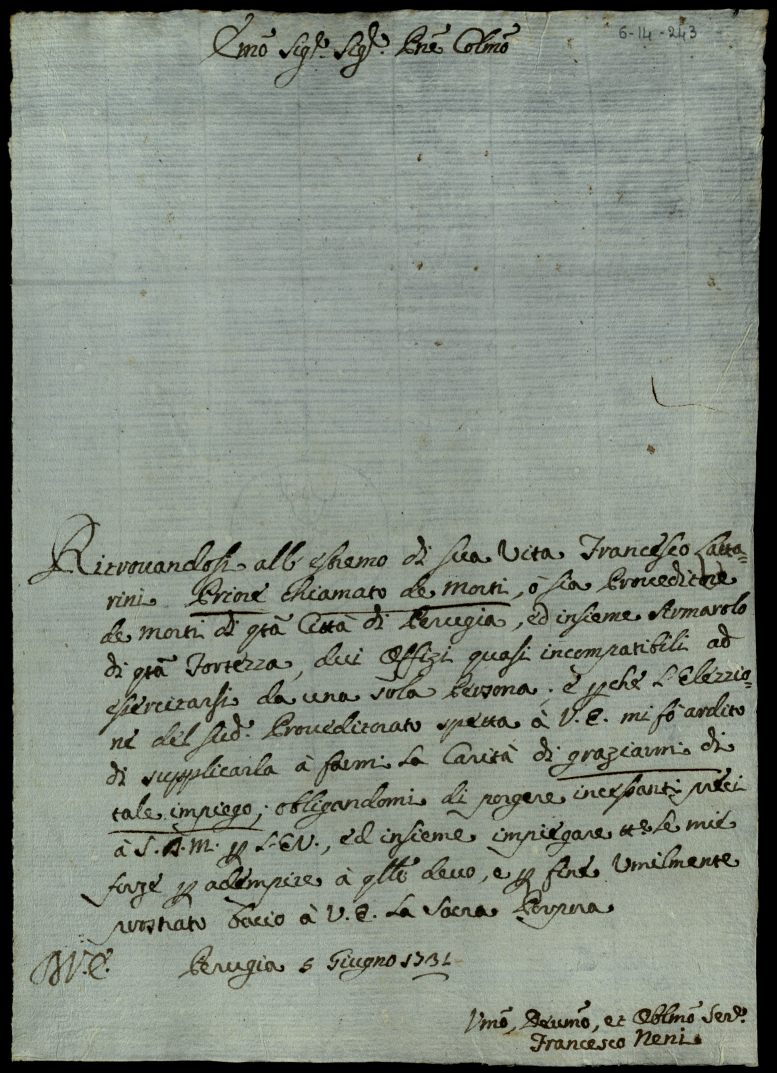 6-14-243
Emõ Sigr. Sigr. Prñe Colmõ
Ritrovandosi all'estremo di sua Vita Francesco Latta=
rini Prione chiamato de Morti, ò sia Proveditore
de morti di qtã Città di Perugia, ed insieme Armarolo
di qtã Fortezza, dui Offizi quasi incompatibili ad
esercitarsi da una sola Persona; e pche L'Elezzio=
ne del sud.º Proveditorato spetta à V.E. mi fò ardito
di supplicarla à farmi La Carità di graziarmi di
tale impiego; obligandomi di porgere incessanti preci
à S.D.M. p L'E.V., ed insieme impiegare tte le mie
forze p adempire à qllo devo, e p fine Umilmente
prostrato bacio à V.E. La Sacra Porpora
D.V.E. Perugia 5 Giugno 1731
Vmõ, Devmõ, et Obblmõ Serv.e
Francesco Neni